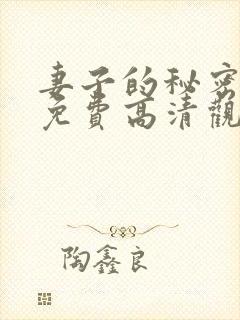 妻子的秘密
免費高清觀
陶鑫良